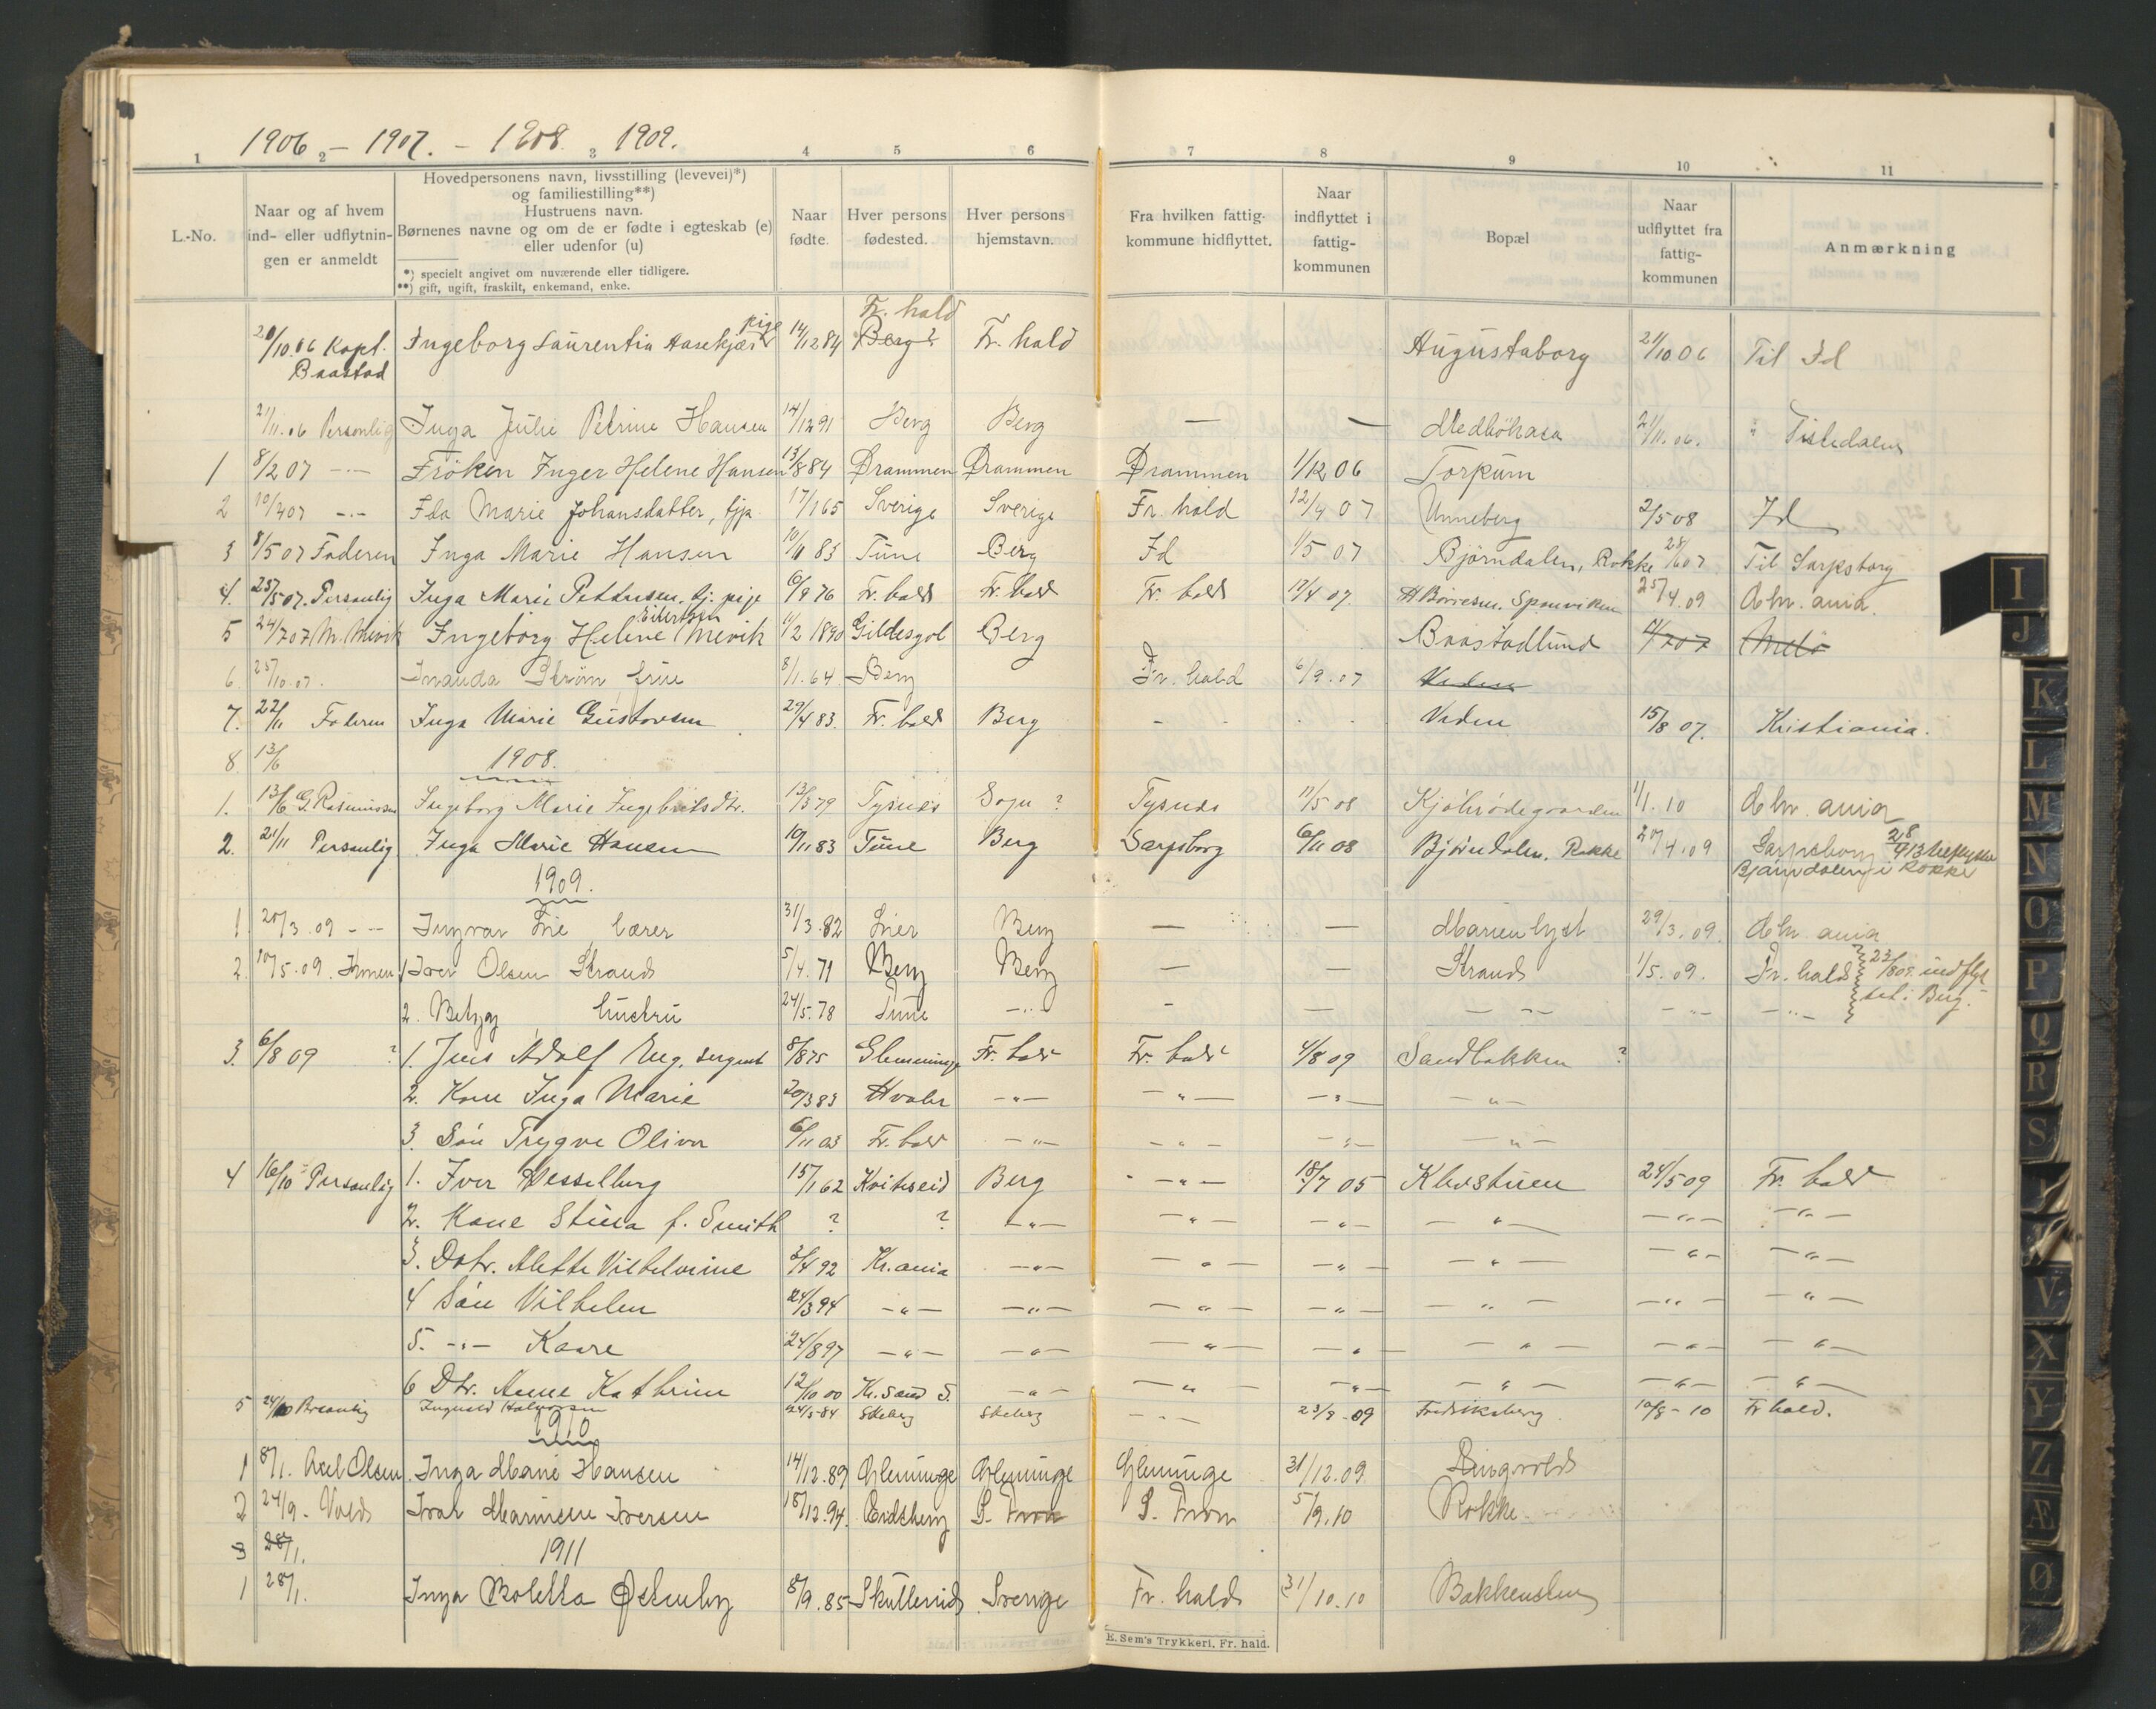 1906 - 1907. - 1908. 1909.
1 2 3 4 5 6 7 8 9 10 11
L.-No.
Naar og af hvem ind- eller udflytnin- gen er anmeldt
Hovedpersonens navn, livsstilling (levevei)*)
og familiestilling**)
Hustruens navn.
Børnenes navne og om de er fødte i egteskab (e)
eller udenfor (u)
*) specielt angivet om nuværende eller tidligere.
**) gift, ugift, fraskilt, enkemand, enke.
Naar fødte.
Hver persons fødested.
Hver persons hjemstavn.
Fra hvilken fattig- kommune hidflyttet.
Naar indflyttet i fattig- kommunen
Bopæl
Naar udflyttet fra fattig- kommunen
Anmærkning
pige Fr. hald
20/10.06 Kapt. Ingeborg Laurentia 14/12 84 Berg? Fr. hald Augustaborg 21/10 06 Til Id
Baastad
21/11.06 Personlig Inga Julie Petrine Hansen 14/12 91 Berg Berg — — 21/11.06. " Tistedalen
1 8/2 07 -"- Frøken Inger Helene Hansen 13/8 84 Drammen Drammen Drammen 1/12 06 Torpum
2 10/4 07 -"- Ida Marie Johansdatter, tjp 17/1 65 Sverige Sverige Fr. hald 12/4 07 Unneberg 2/5 08 Id
3 8/5 07 Faderen Inga Marie Hansen 10/11 83 Tune Berg Id 1/5 07 Bjørndalen, Rokke 28/6 07 Til Sarpsborg
4. 25/5 07. Personlig Inga Marie Pettersen. tj. pige 6/9 76 Fr. hald Fr. hald Fr. hald 12/4 07. Sponviken 25/4.09 Chr. ania.
Eilertsen
5 24/7 07 M. Mevik Ingeborg Helene Mevik 11/2 1890 Berg Baastadlund
6. 25/10.07. Strøm frue 8/1.64 Berg Fr. hald 6/9.07 Veden
7. 22/11 Faderen Inga Marie Gustavsen 29/4 83. Fr. hald Berg Veden 15/8 07. Kristiania.
8. 13/6 1908.
1. 13/6 G. Rasmussen Ingeborg Marie Ingebritsdtr. 13/3 79 Tysnes ? Tysnes 11/5 08 1/1.10 Chr. ania
2. 21/11 Personlig Inga Marie Hansen 10/11 83 Tune Berg Sarpsborg 6/11 08 Bjørndalen. Rokke 20/4.09 Sarpsborg
Bjørndalen i Rokke
1909.
1. 20/3.09 -- Ingvar Lie lærer 31/3.82 Lier Berg — — Marienlyst 29/3.09. Chr. ania
2. 10/5.09. 1 Iver Olsen Strand 5/4.71 Berg Berg — — Strand 1/5.09. Fr. hald 23/8 09. indflyt
tet i Berg.
2. Betzy hustru 24/5.78 Tune -"- - — - "- -"- -"-
3. 6/8 09 ? 1. Jens Adolf Eng, sergent 8/8 75 Glemminge Fr. hald Fr. hald 4/8 09 Sandbakken ?
2. Kone Inga Marie 20/3 83 Hvaler -"- -"- -"- -"-
3. Søn Trygve Oliver 6/11 03 Fr. hald -"- -"- -"- -"-
4 16/10 Personlig 1. Iver Hesselberg 15/11 62 Kviteseid Berg -"- 18/7 05 24/5 09 Fr. hald
2. Kone Stina f. Smith ? ? -"- -"- -"- -"- -"- -"-
3. Datr. Alette Vilhelmine 3/4 92 Kr. ania -"- -"- -"- -"- -"- -"-
4 Søn Vilhelm 24/3 94 -"- -"- -"- -"- -"- -"- -"-
5. -"- Kaare 24/8 97 -"- -"- -"- -"- -"- -"- -"-
6 Dtr. Anne Kathrine 12/10 00 Kr. sand S. -"- -"- -"- -"- -"- -"-
5 24/10 Personlig Ingvald Halvorsen 24/5-84 Skeberg Skeberg -"- 23/9-09 Fredriksberg 10/8-10 Fr hald.
1910
1 8/1. Axel Olsen Inga Marie Hansen 14/12.89 Glemminge Glemminge Glemminge 31/12.09 Ringvold
2 24/9. Ivar Iversen 18/12.94. Eidsberg S. Fron S. Fron 5/9.10 Rokke.
3 28/1. 1911
1 28/1. Inga Moletta Østenby 8/9.85 Sverige Fr. hald 31/10.10
K. Sem's Trykkeri, Fr. hald.
I
J
K
L
M
N
O
P
Q
R
S
V
X
Y
Z
Æ
Ø